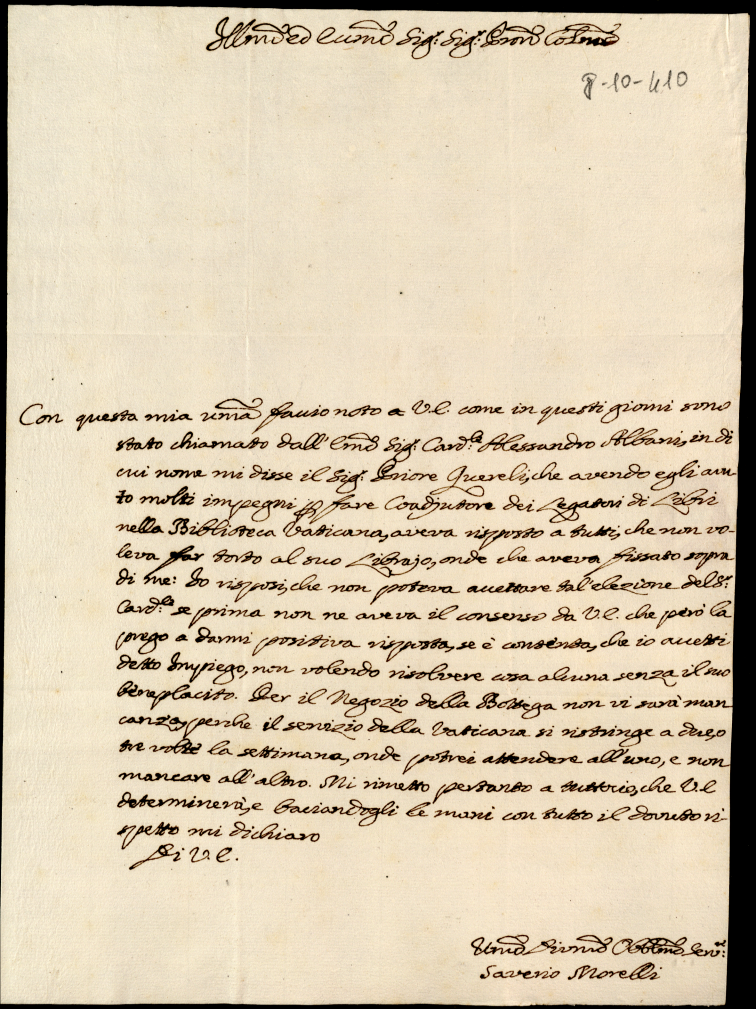 Illmo ed Eccmo Sig:r Sig:r Pron Colmo
8-10-410
Con questa mia umma faccio noto a V.E. come in questi giorni sono
stato chiamato dall'Emo Sig:r Card:le Alessandro Albani, in di
cui nome mi disse il Sig:r Priore Quereli, che avendo egli avu-
to molti impegni p fare Coadjutore dei Legatori di Libri
nella Biblioteca Vaticana, aveva risposto a tutti, che non vo-
leva far torto al suo Librajo, onde che aveva fissato sopra
di me: Io risposi, che non poteva accettare tal'elezione del S:r
Card:le se prima non ne aveva il consenso da V.E. che però la
prego a darmi positiva risposta, se è contenta, che io accetti
detto Impiego, non volendo risolvere cosa alcuna senza il suo
beneplacito. Per il Negozio della Bottega non vi sarà man
canza, perche il servizio della Vaticana si ristringe a due, o
tre volte la settimana, onde potrei attendere all'uno, e non
mancare all'altro. Mi rimetto pertanto a tuttociò, che V.E
determinerà, e baciandogli le mani con tutto il dovuto ri-
spetto mi dichiaro
Di V.E.
Umo Divmo Obblmo Serv:re
Saverio Morelli